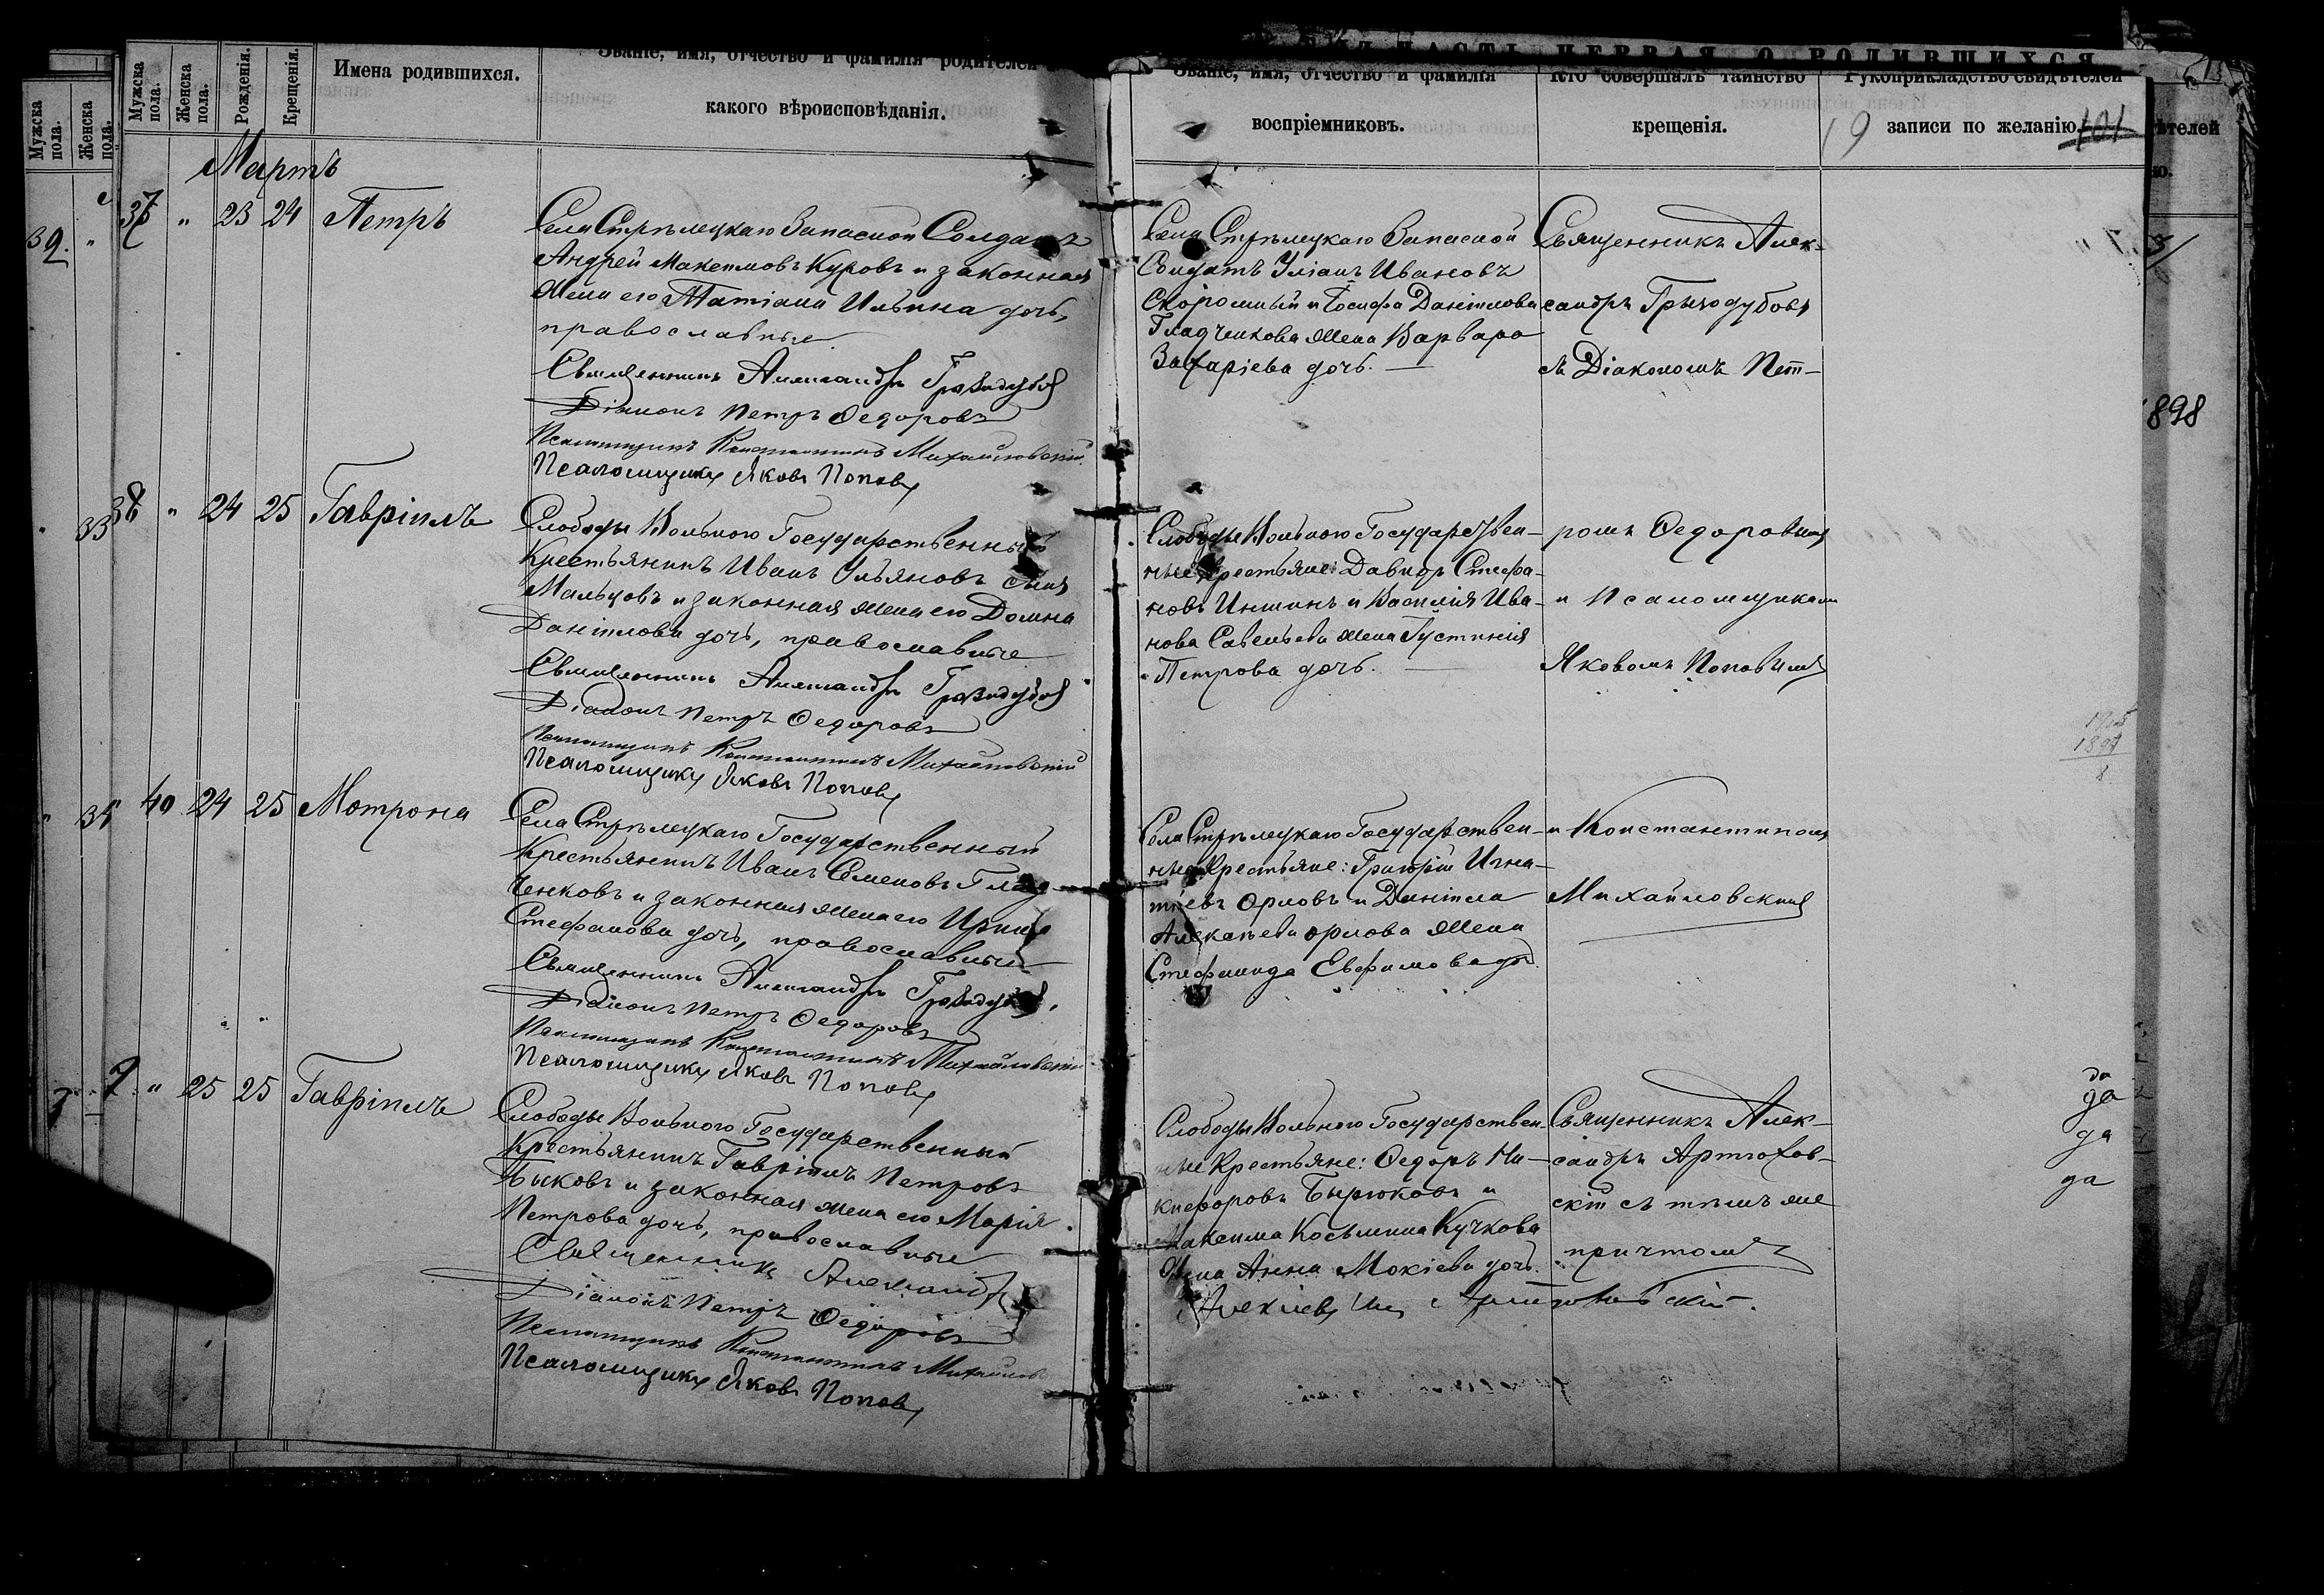 ЧАСТЬ ПЕРВАЯ О РОДИВШИХСЯ
Мужска пола.
Женска пола.
Мужска пола.
Женска пола.
Рожденія.
Крещенія.
Имена родившихся.
Званіе, имя, отчество и фамилія родителей
какого вѣроисповѣданія.
Званіе, имя, отчество и фамилія
воспріемниковъ.
Кто совершалъ таинство
крещенія.
Рукоприкладство свидѣтелей
записи по желанію.
19
101
Мартъ
37 " 23 24 Петръ
Села Стрѣлецкаго Запасной Солдатъ
Андрей Максимовъ Куровъ и законная
жена его Татіана Ильина дочь,
православные
Священникъ Александръ
Діаконъ Петръ Ѳедоровъ
Псаломщикъ Константинъ Михайловскій
Псаломщикъ Яковъ Поповъ
Села Стрѣлецкаго Запасной
Солдатъ Уліанъ Ивановъ
и Іосифа Даніилова
Гладченкова жена Варвара
Захаріева дочь.
Священникъ Алек-
сандръ
съ Діакономъ Пет-
38 " 24 25 Гавріилъ
Слободы Вольного Государственный
Крестьянинъ Иванъ Ульяновъ сынъ
Мальцовъ и законная жена его Домна
Даніилова дочь, православные
Священникъ Александръ
Діаконъ Петръ Ѳедоровъ
Псаломщикъ Константинъ Михайловскій
Псаломщикъ Яковъ Поповъ
Слободы Вольного Государствен-
ные крестьяне: Давидъ Стефа-
новъ Иншинъ и Василія Ива-
нова Савельева жена Густинія
Петрова дочь.
ромъ Ѳедоровымъ
и Псаломщиками
Яковомъ Поповымъ
40 24 25 Мотрона
Села Стрѣлецкаго Государственный
Крестьянинъ Иванъ Семеновъ Глад-
ченковъ и законная жена его Ирина
Стефанова дочь, православные
Священникъ Александръ
Діаконъ Петръ Ѳедоровъ
Псаломщикъ Константинъ Михайловскій
Псаломщикъ Яковъ Поповъ
Села Стрѣлецкаго Государствен-
ные Крестьяне: Григорій Игна-
тіевъ Орловъ и Даніила
Алексѣева Орлова жена
Стефанида Евфимова дочь
и Константиномъ
Михайловскимъ
" 25 25 Гавріилъ
Слободы Вольного Государственный
Крестьянинъ Гавріилъ Петровъ
Быковъ и законная жена его Марія
Петрова дочь, православные
Священникъ Александръ
Діаконъ Петръ Ѳедоровъ
Псаломщикъ Константинъ
Псаломщикъ Яковъ Поповъ
Слободы Вольного Государствен-
ные Крестьяне: Ѳедоръ Ни-
кифоровъ Бирюковъ и
Максима Косьмина Кучкова
жена Анна Мокіева дочь.
Священникъ Алек-
сандръ Артюхов-
скій съ тѣмъ же
причтомъ
898
да
да
да